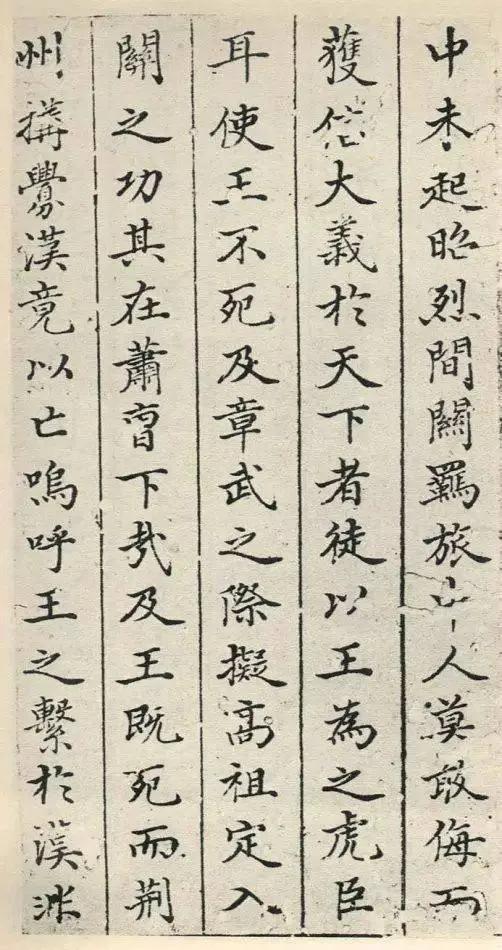 中未起昭烈間關羈旅人莫敢侮而
獲信大義於天下者徒以王為之虎臣
耳使王不死及章武之際擬高祖定入
關之功其在蕭曹下哉及王既死而荆
州搆釁漢竟以亡嗚呼王之繫於漢非